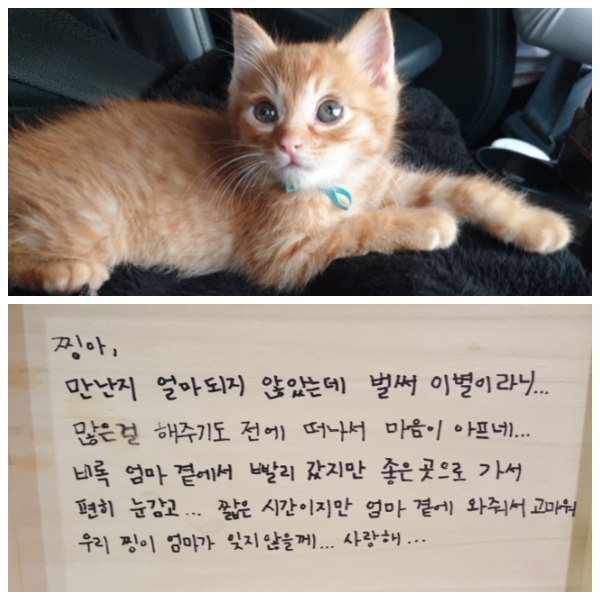 찡아,
만난지 얼마되지 않았는데 벌써 이별이라니...
많은걸 해주기도 전에 떠나서 마음이 아프네...
비록 엄마 곁에서 빨리 갔지만 좋은곳으로 가서
편히 눈감고... 짧은 시간이지만 엄마 곁에 와줘서 고마워
우리 찡이 엄마가 잊지않을께... 사랑해...